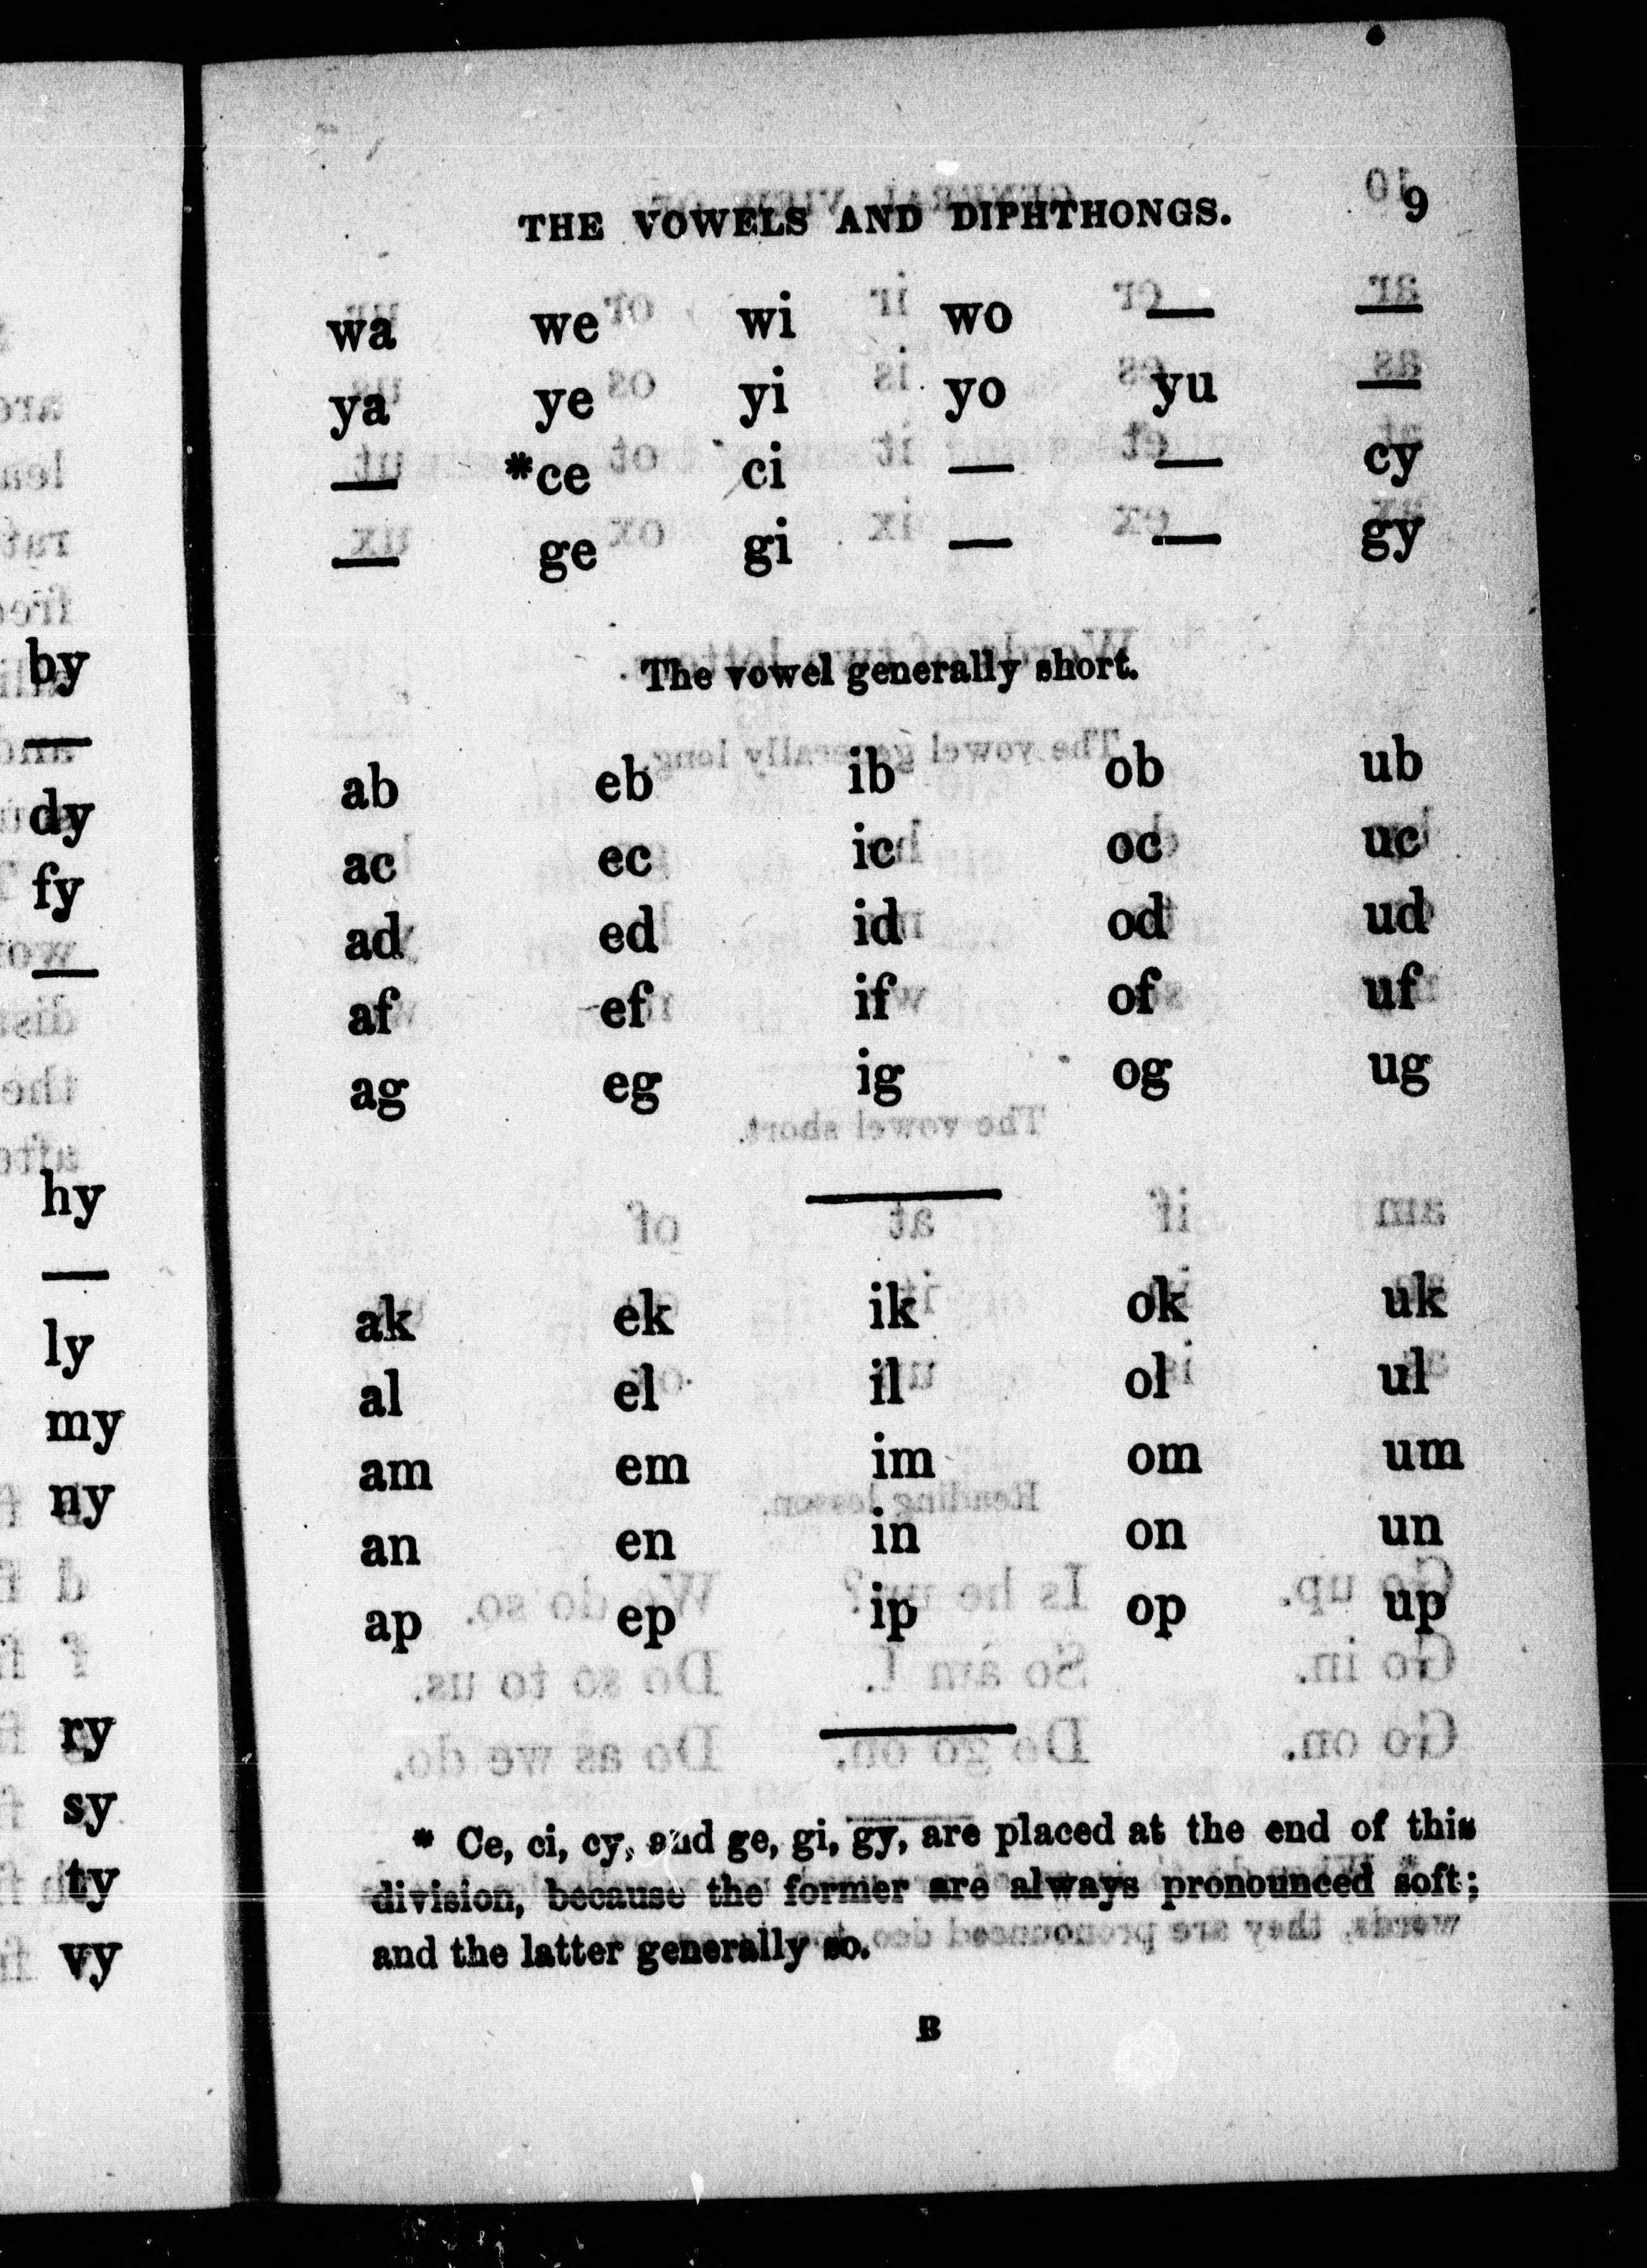 THE VOWELS AND DIPHTHONGS. 9
wa we wi wo — —
ya ye yi yo yu —
— *ce ci — — cy
— ge gi — — gy
The vowel generally short.
ab eb ib ob ub
ac ec ic oc uc
ad ed id od ud
af ef if of uf
ag eg ig og ug
ak ek ik ok uk
al el il ol ul
am em im om um
an en in on un
ap ep ip op up
* Ce, ci, cy, and ge, gi, gy, are placed at the end of this
division, because the former are always pronounced soft;
and the latter generally so.
B
by
—
dy
fy
—
hy
—
ly
my
ny
ry
sy
ty
vy